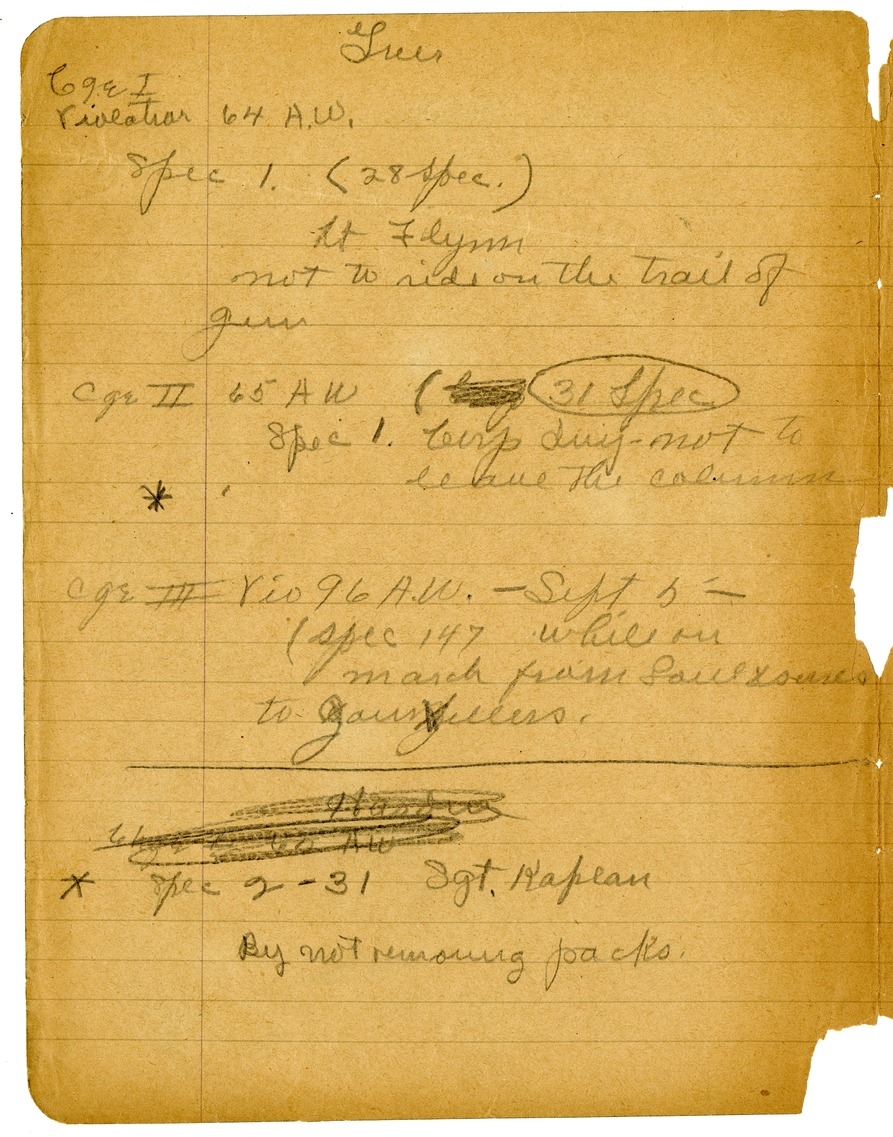 Cge I
Violation 64 A.W.
Spec 1. (28 spec.)
Lt Flynn
not to ride on the trail of
gun
Cge II 65 A W ( 31 Spec
Spec 1. Corp not to
leave the column
*
Cge III Vio 96 A.W. – Sept 5 –
(spec 147 while on
march from
to
Hardin
65 AW
x Spec 2 - 31 Sgt. Kaplan
By not removing packs.